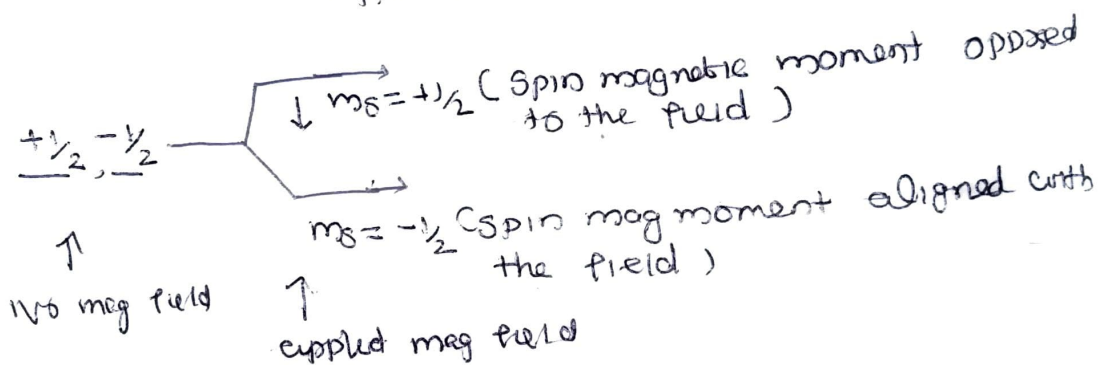 ms = +1/2 ( Spin magnetic moment opposed
to the field )
+1/2, -1/2
ms = -1/2 (spin mag moment aligned with
the field )
No mag field
applied mag field